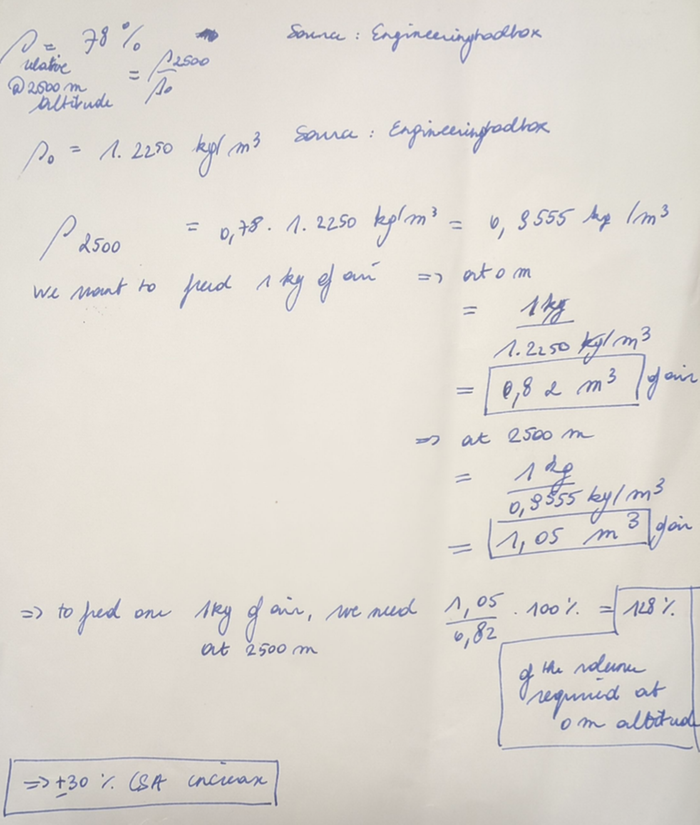 ρ = 78 % Source : Engineeringtoolbox
relative = ρ2500 / ρ0
@ 2500 m
altitude
ρ0 = 1.2250 kg/m³ Source : Engineeringtoolbox
ρ 2500 = 0,78 · 1.2250 kg/m³ = 0,9555 kg/m³
We want to feed 1 kg of air => at 0 m
= 1 kg / 1.2250 kg/m³
= 0,82 m³ of air
=> at 2500 m
= 1 kg / 0,9555 kg/m³
= 1,05 m³ of air
=> to feed one 1kg of air, we need 1,05 / 0,82 · 100 % = 128 %
at 2500 m
of the volume
required at
0 m altitude
=> ±30 % CSA increase